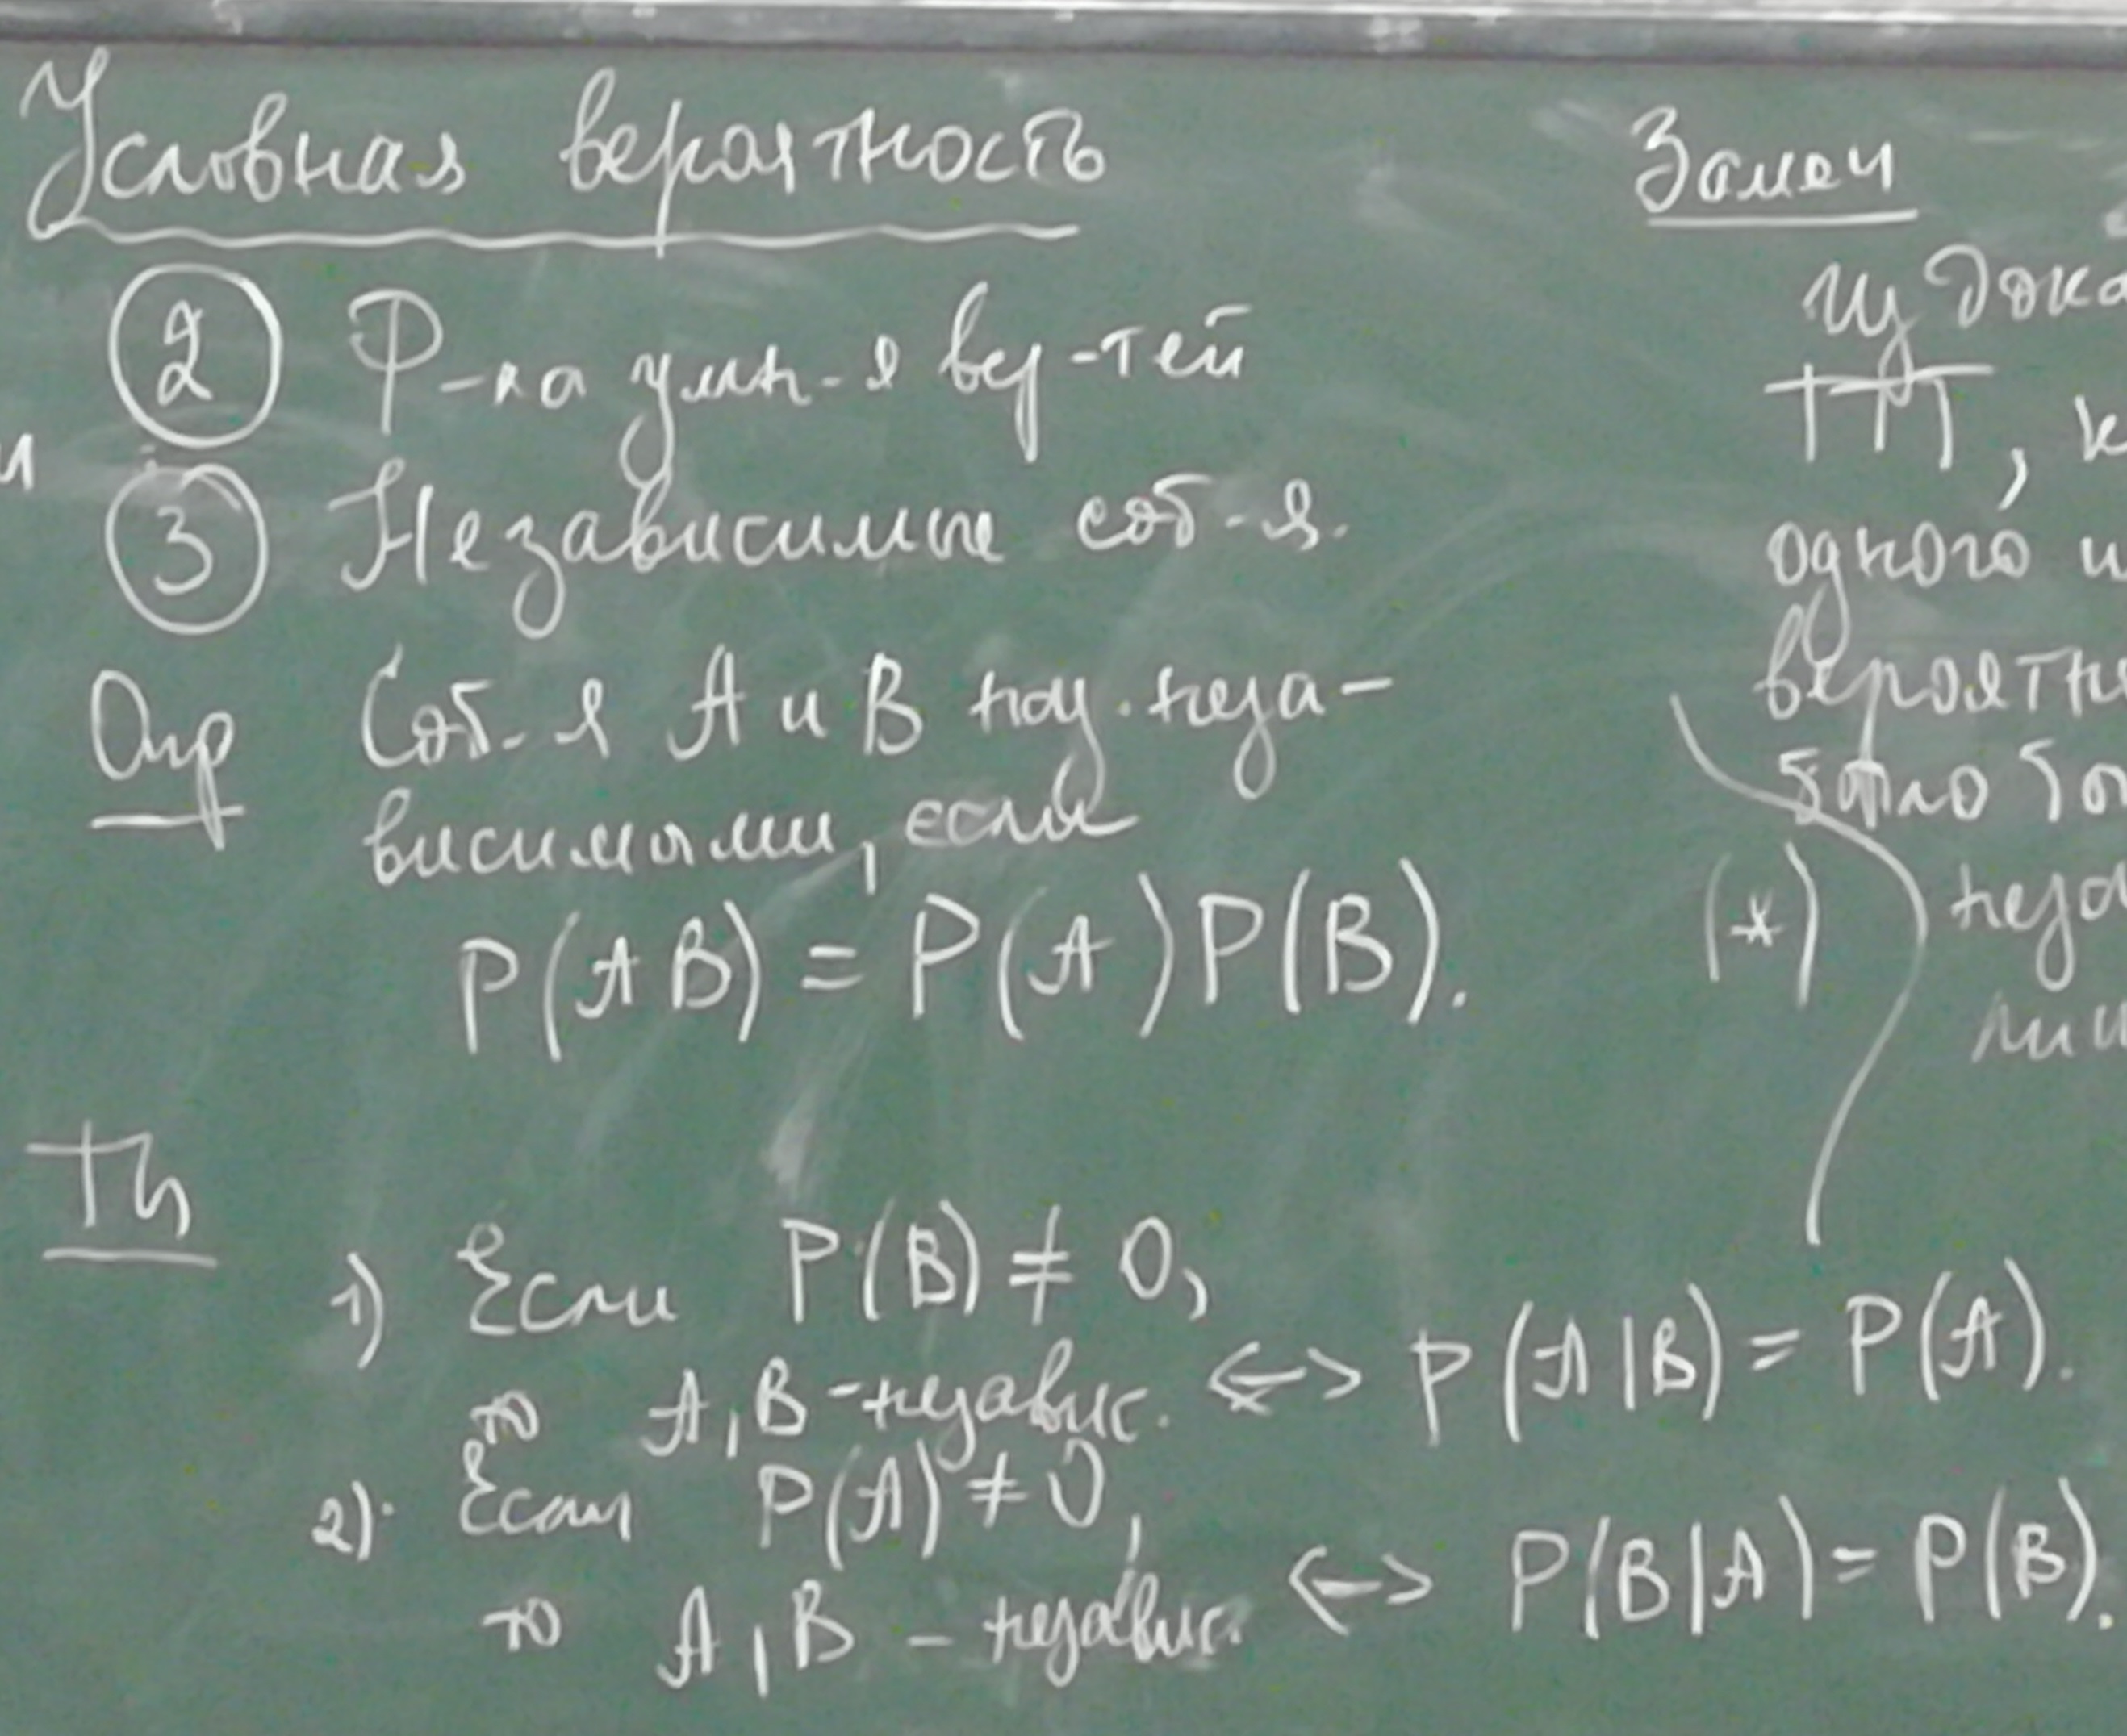 Условная вероятность
② Ф-ла умн-я вер-тей
③ Независимые соб-я.
Опр Соб-я A и B наз. неза-
висимыми, если
P(AB) = P(A)P(B).
Th
1) Если P(B) ≠ 0,
то A, B - независ. <=> P(A|B) = P(A).
2). Если P(A) ≠ 0,
то A, B - независ. <=> P(B|A) = P(B).
Замеч
Из дока
одного и
вероятн
было бы
(*) неза